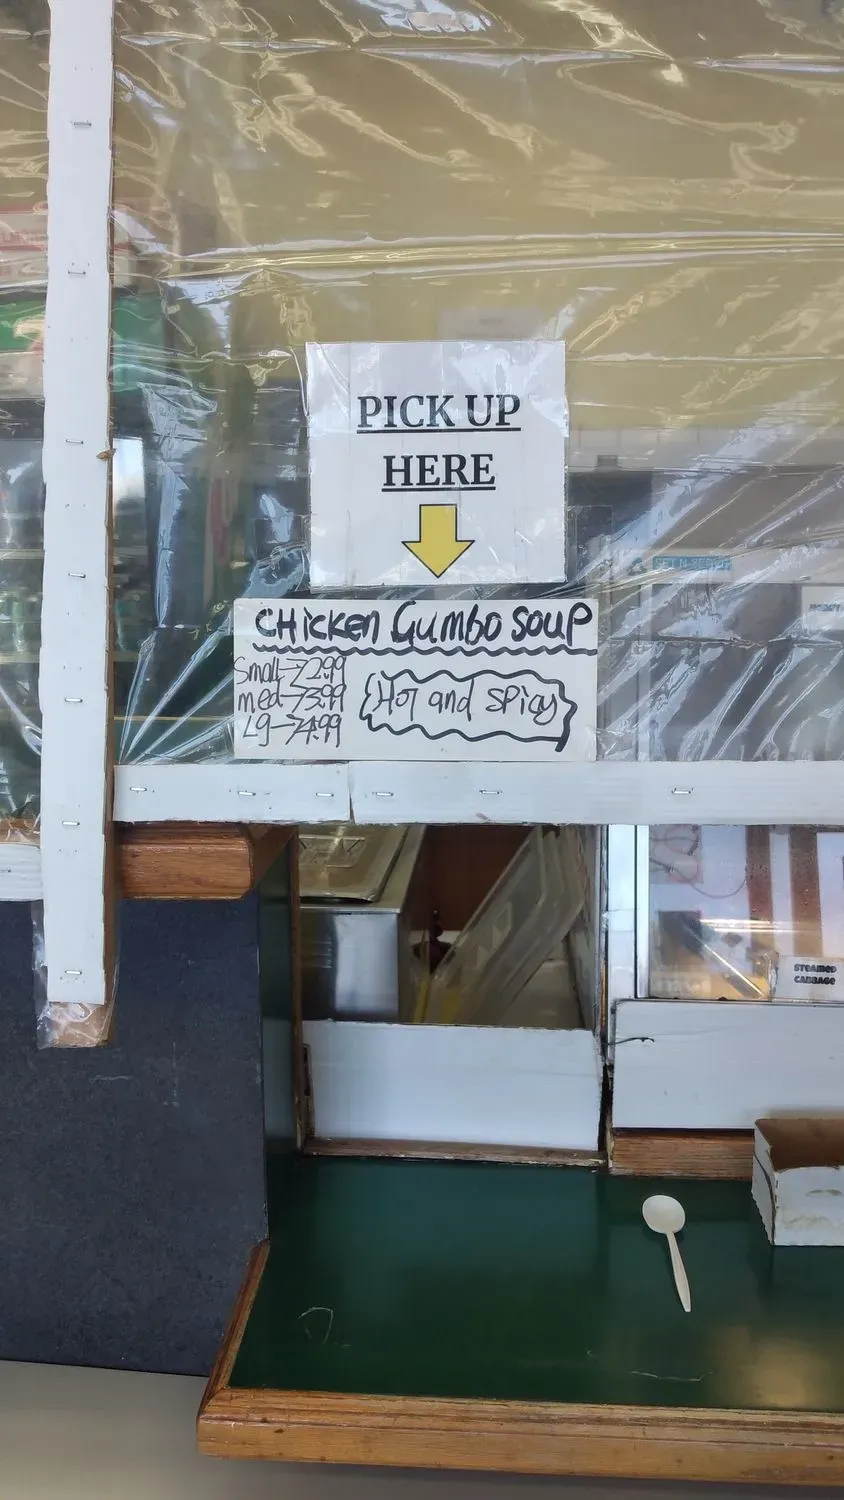 PICK UP
HERE
CHICKEN GUMBO SOUP
Small→2.99
med→3.99
Lg→4.99
Hot and spicy
STEAMED
CABBAGE